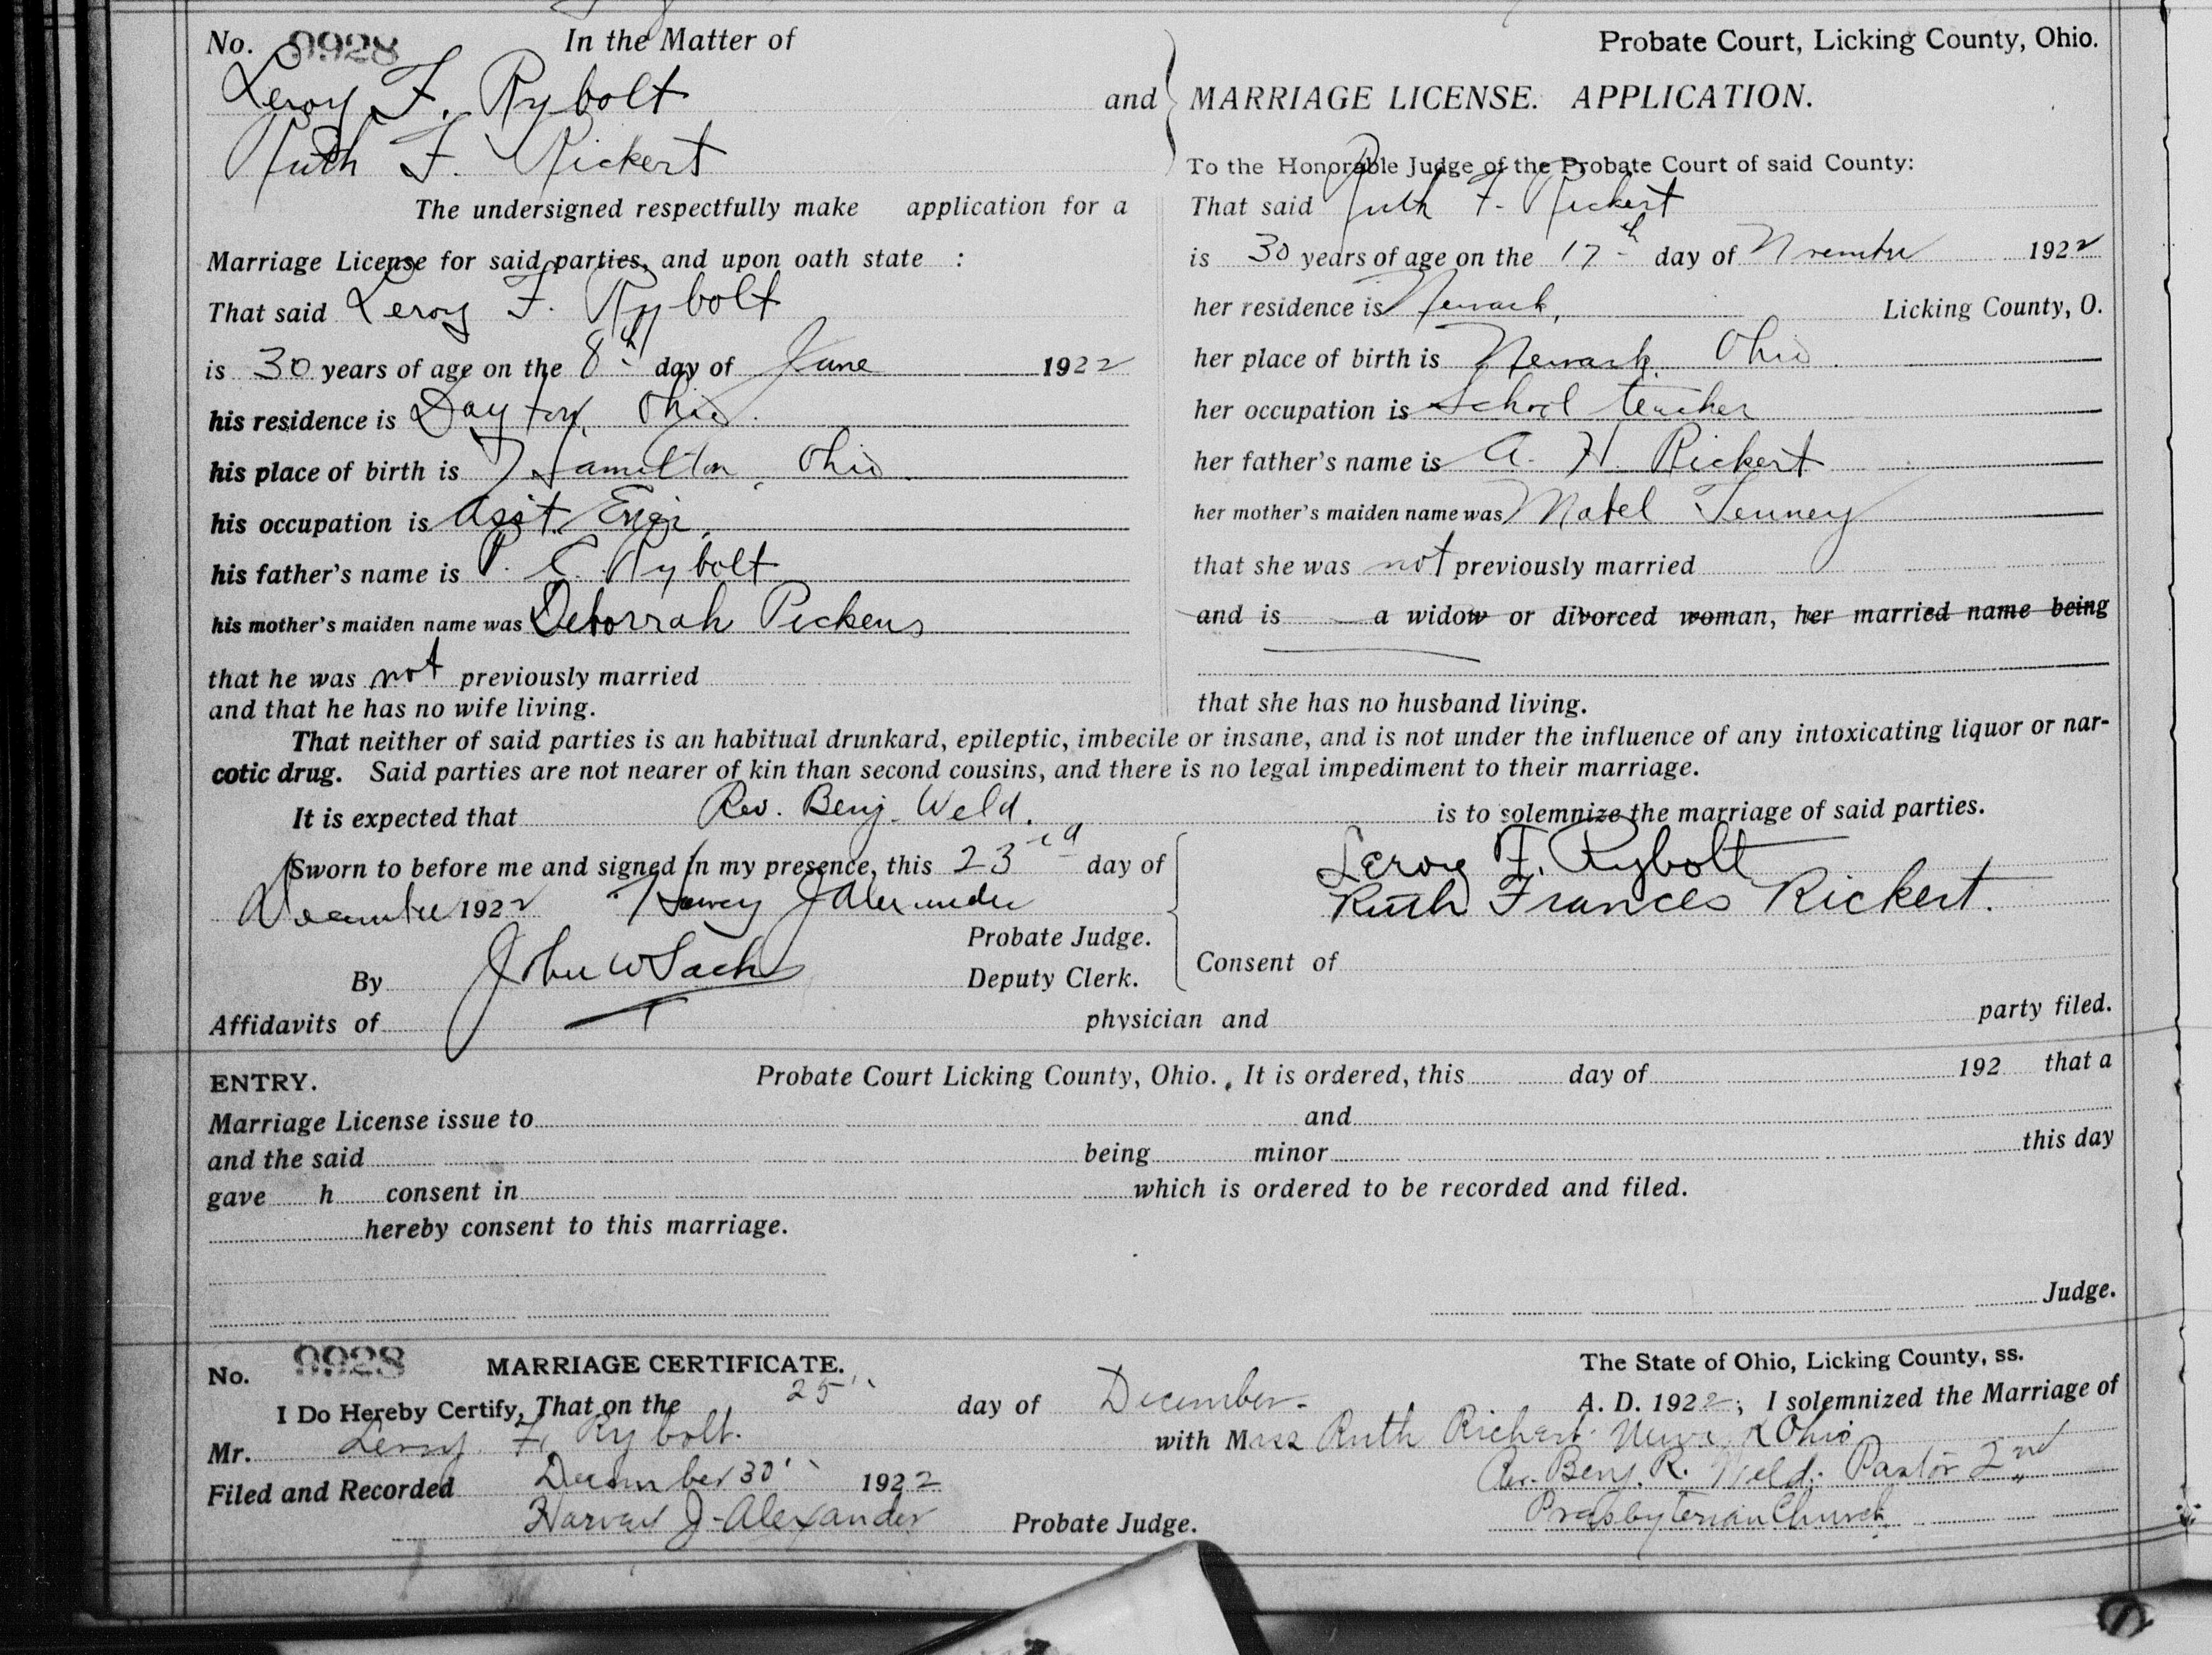 No. 9928 In the Matter of
Leroy F. Rybolt and
Ruth F. Rickert
The undersigned respectfully make application for a
Marriage License for said parties, and upon oath state :
That said Leroy F. Rybolt
is 30 years of age on the 8th day of June 1922
his residence is Dayton, Ohio.
his place of birth is Hamilton, Ohio
his occupation is Asst. Engr.
his father's name is P. E. Rybolt
his mother's maiden name was Deborrah Pickens
that he was not previously married
and that he has no wife living.
Probate Court, Licking County, Ohio.
MARRIAGE LICENSE. APPLICATION.
To the Honorable Judge of the Probate Court of said County:
That said Ruth F. Rickert
is 30 years of age on the 17th day of November 1922
her residence is Newark, Licking County, O.
her place of birth is Newark, Ohio.
her occupation is School teacher
her father's name is A. H. Rickert
her mother's maiden name was Mabel Tenney
that she was not previously married
and is a widow or divorced woman, her married name being
that she has no husband living.
That neither of said parties is an habitual drunkard, epileptic, imbecile or insane, and is not under the influence of any intoxicating liquor or nar-
cotic drug. Said parties are not nearer of kin than second cousins, and there is no legal impediment to their marriage.
It is expected that Rev. Benj. Weld. is to solemnize the marriage of said parties.
Sworn to before me and signed in my presence, this 23rd day of
December 1922 Harvey J Alexander
Probate Judge.
By John W Sachs Deputy Clerk.
Leroy F. Rybolt
Ruth Frances Rickert.
Consent of
Affidavits of physician and party filed.
ENTRY. Probate Court Licking County, Ohio. It is ordered, this day of 192 that a
Marriage License issue to and
and the said being minor this day
gave h consent in which is ordered to be recorded and filed.
hereby consent to this marriage.
Judge.
No. 9928 MARRIAGE CERTIFICATE. The State of Ohio, Licking County, ss.
I Do Hereby Certify, That on the 25" day of December A. D. 1922; I solemnized the Marriage of
Mr. Leroy F. Rybolt. with Miss Ruth Rickert. Newark Ohio
Filed and Recorded December 30" 1922 Rev. Benj. R. Weld. Pastor 2nd
Harvey J. Alexander Probate Judge. Presbyterian Church